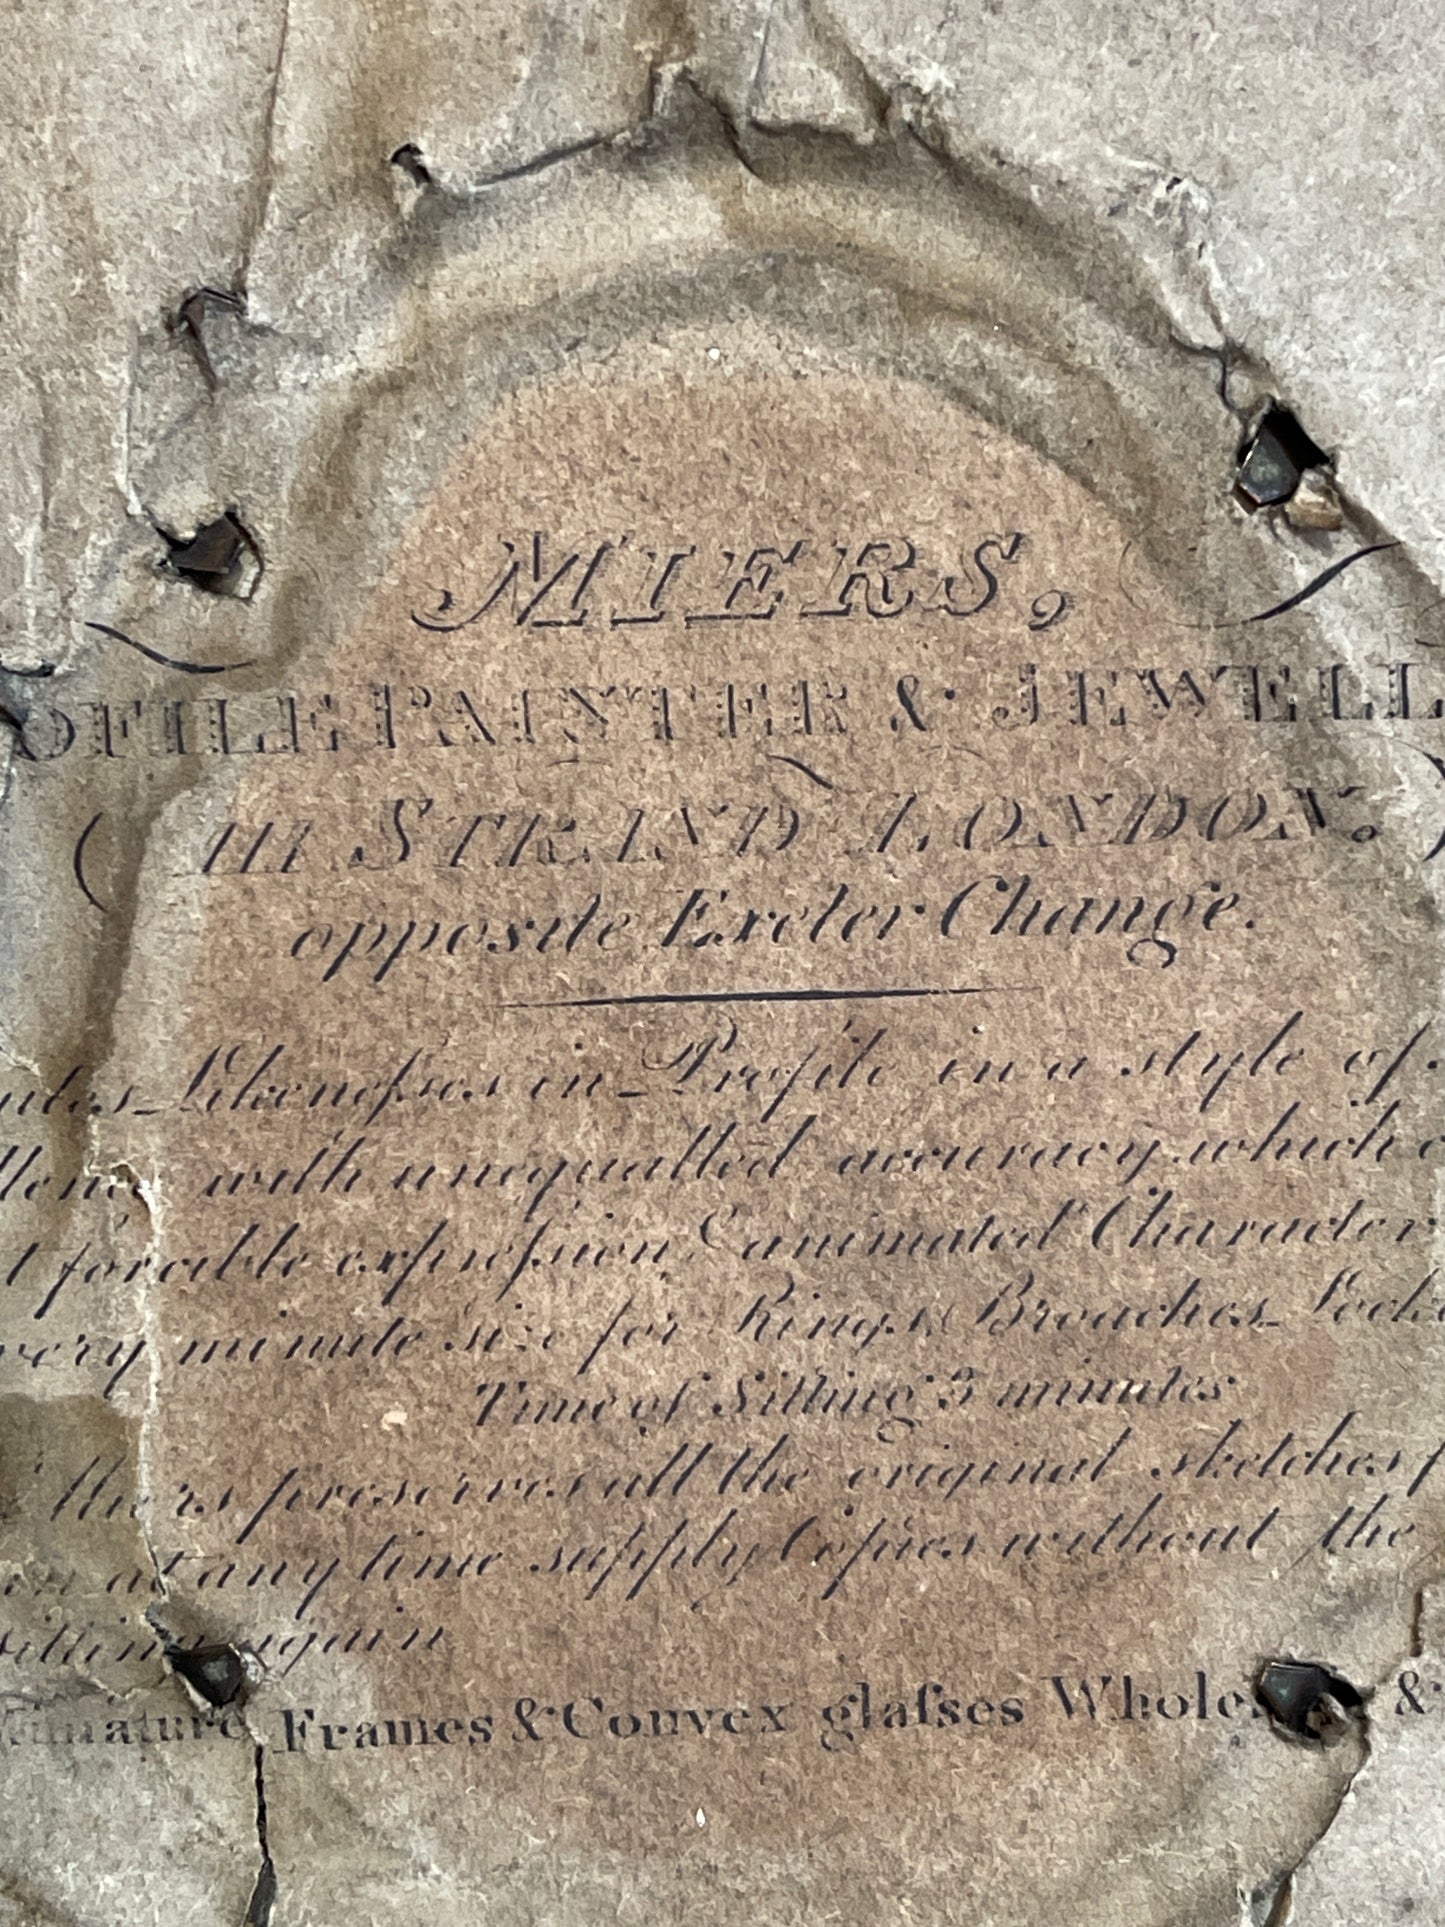 MIERS,
OFILE PAINTER & JEWELL
111 STRAND LONDON.
opposite Exeter Change.
utes Likeneſses in Profile in a style of
llence with unequalled accuracy which c
t forcible expreſsion & animated Character
very minute size for Rings, Broaches Locke
Time of Sitting 3 minutes
Miers preserves all the original sketches f
at any time supply Copies without the
sitting again
Miniature Frames & Convex glaſses Wholes &